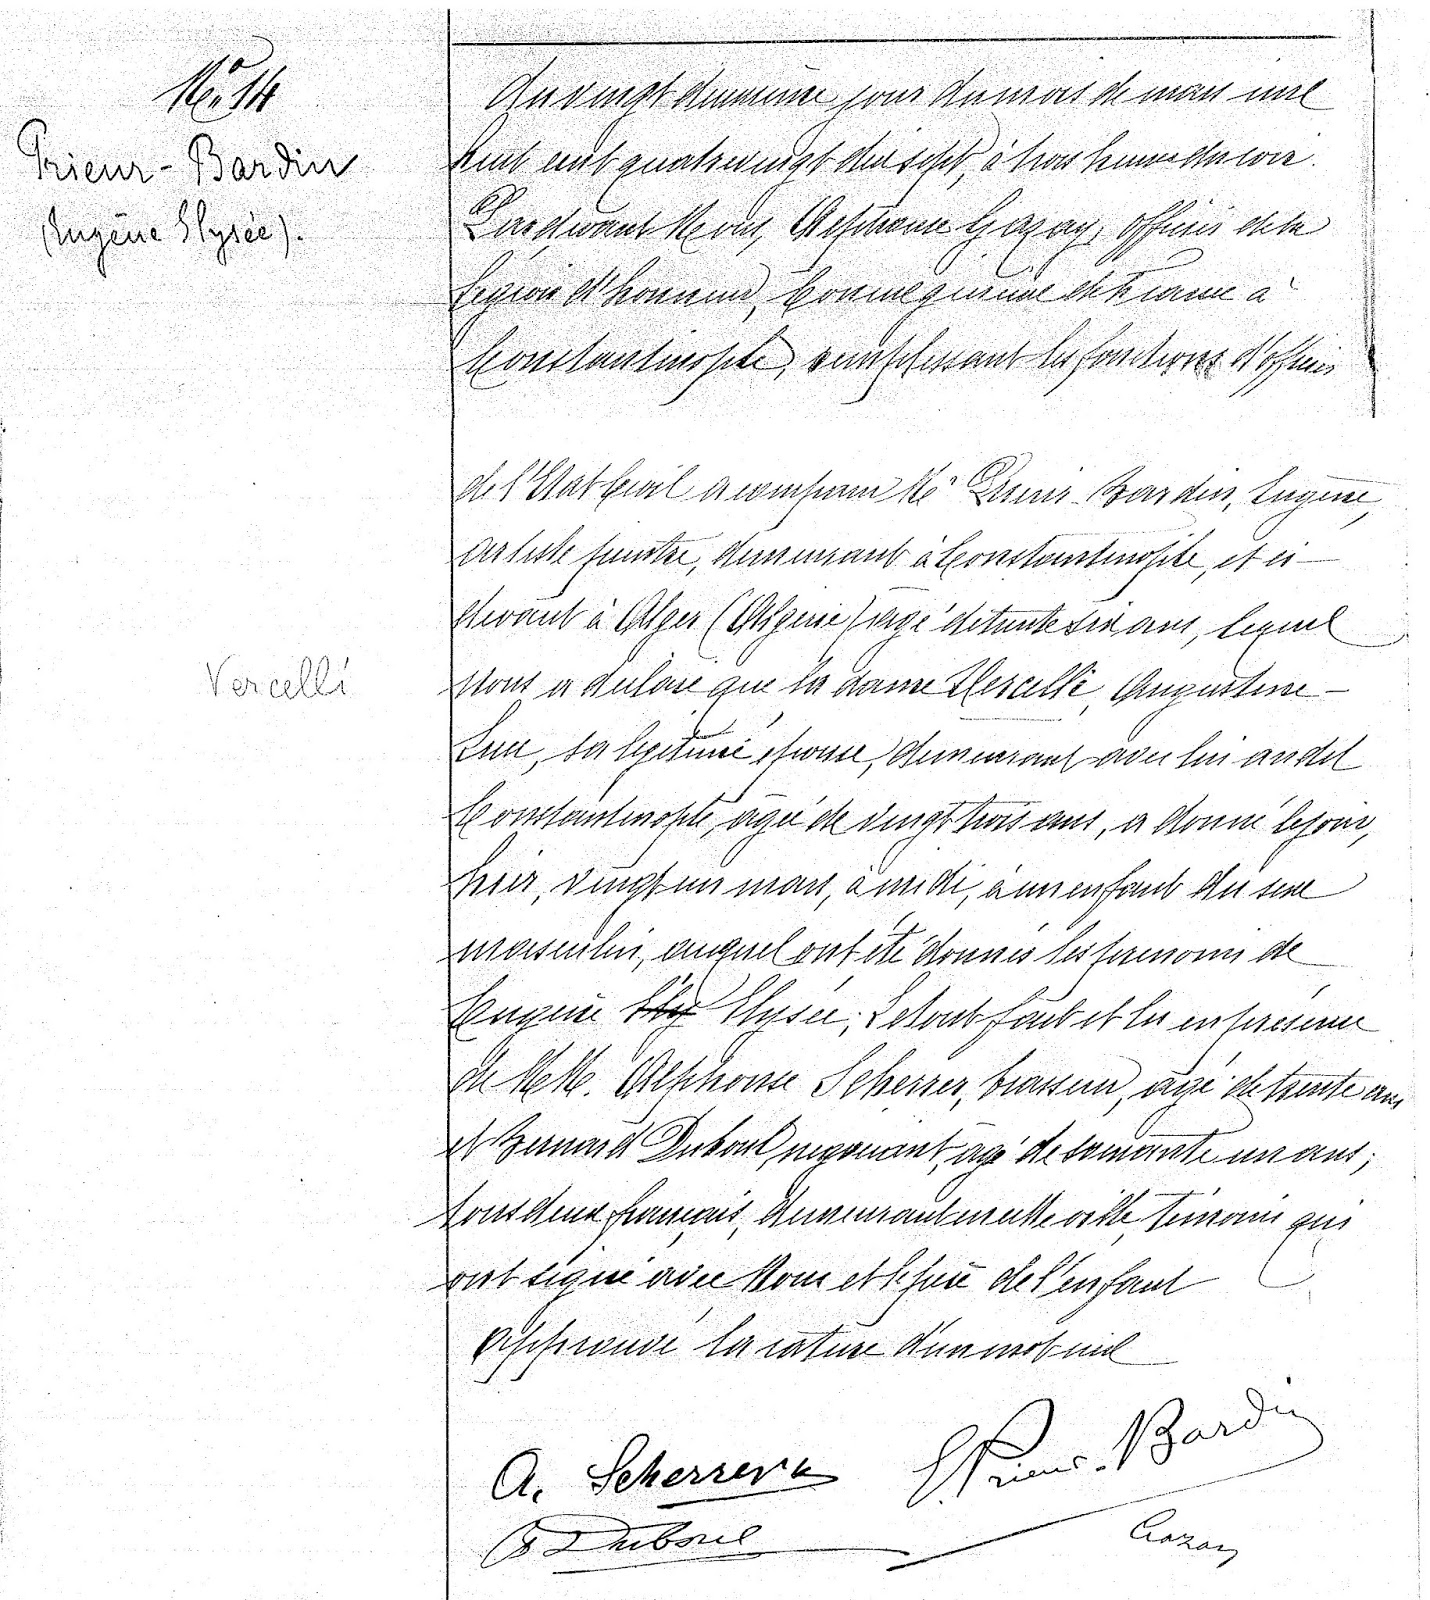 No. 14
Prieur-Bardin
(Eugène Elysée).
Du vingt deuxième jour du mois de mars mil
huit cent quatre vingt dix sept, à trois heures du soir.
Pardevant Nous, Alphonse Gazay, Officier de la
Légion d'honneur, Consul général de France à
Constantinople, remplissant les fonctions d'officier
de l'Etat Civil a comparu Mr Prieur-Bardin, Eugène,
artiste peintre, demeurant à Constantinople, et ci-
devant à Alger (Algérie) agé de trente six ans, lequel
Nous a déclaré que la dame Vercelli, Augustine-
sa légitime épouse, demeurant avec lui audit
Constantinople, agée de vingt trois ans, a donné le jour,
hier, vingt un mars, à midi, à un enfant du sexe
masculin, auquel ont été donnés les prénoms de
Eugène Ely Elysée; Le tout fait et lu en présence
de MM. Alphonse Scherrer, brasseur, agé de trente ans
et Bernard Duboul, négociant, agé de soixante un ans;
tous deux français, demeurant en cette ville, témoins qui
ont signé avec Nous et le père de l'enfant
Approuvé la rature d'un mot nul
Vercelli
A. Scherrer
E. Prieur-Bardin
B Duboul
Gazay